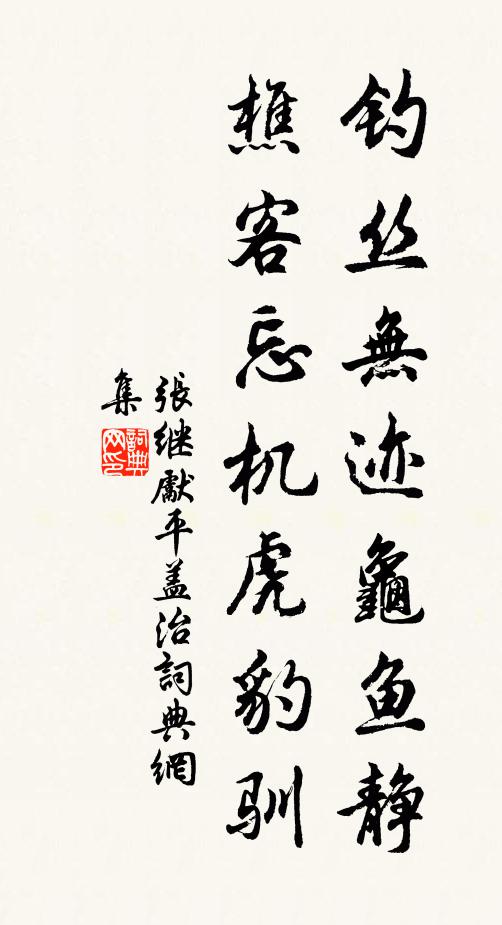 钓丝無迹龜鱼静
樵客忘机虎豹驯
張继獻平盖治詞典網
集
詞典网印